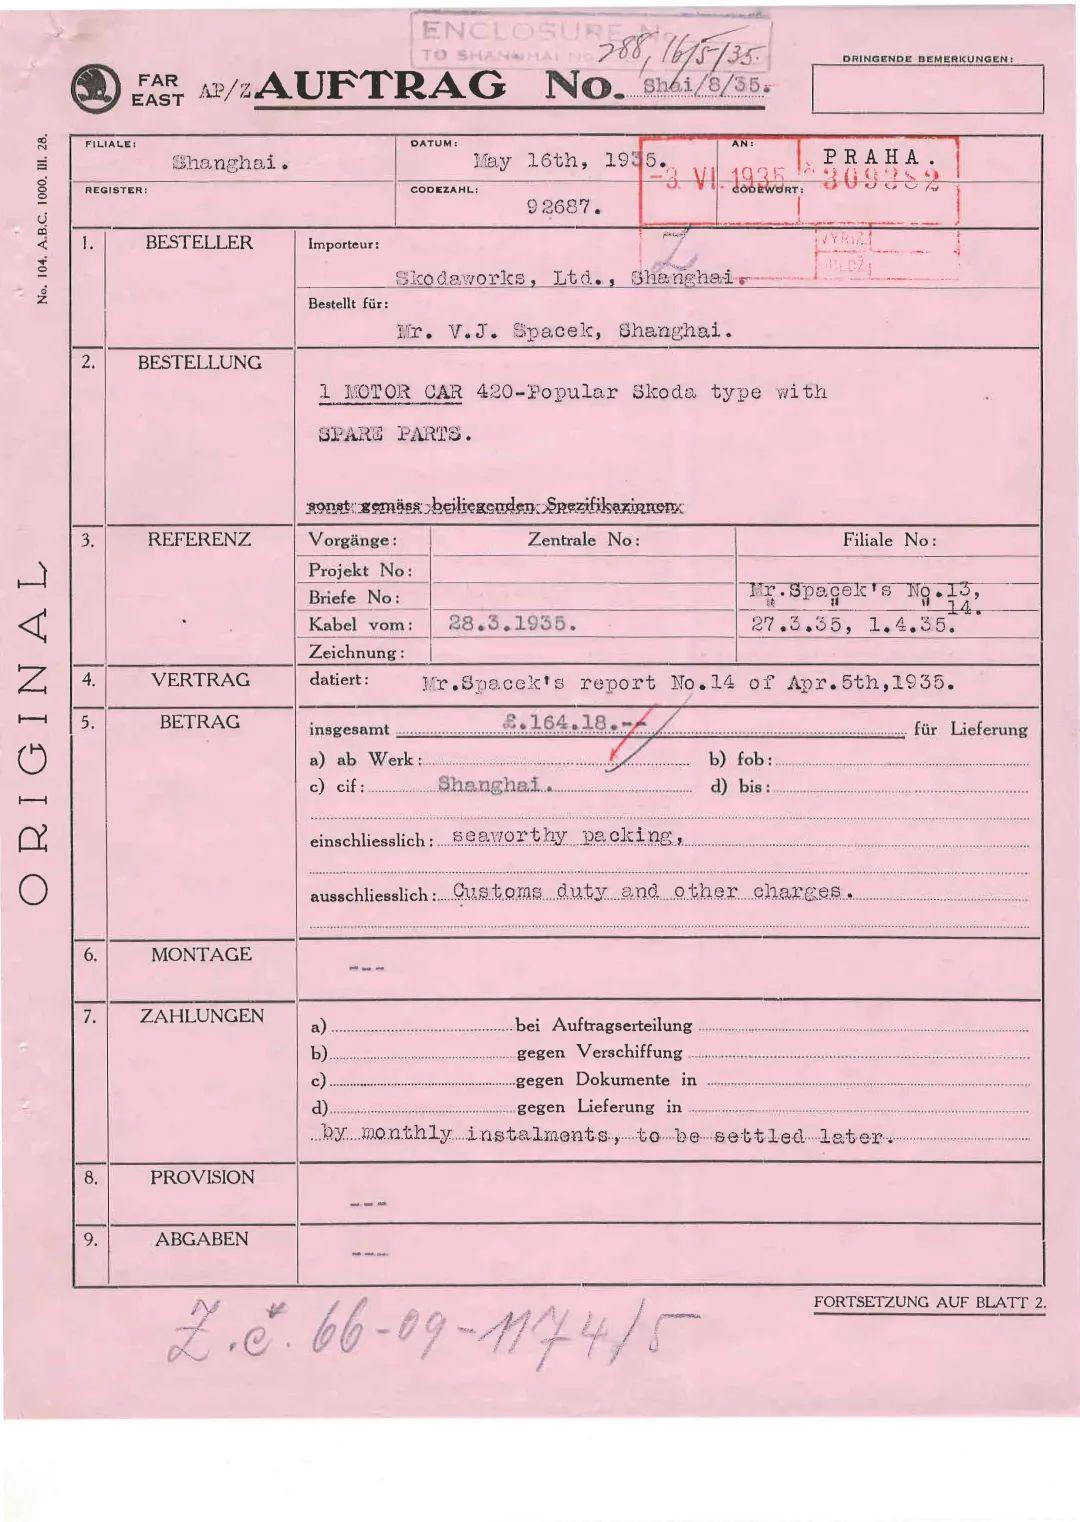 ENCLOSURE No.
TO SHANGHAI No. 288, 16/5/35.
DRINGENDE BEMERKUNGEN:
FAR EAST AP/Z AUFTRAG No. Shai/8/35.
No. 104. A.B.C. 1000. III. 28.
FILIALE: Shanghai.
DATUM: May 16th, 1935.
AN: PRAHA.
-3. VI. 1935 * 309382
REGISTER:
CODEZAHL: 92687.
CODEWORT:
VYŘIZ.
Z
1. BESTELLER
Importeur:
Skodaworks, Ltd., Shanghai.
Bestellt für:
Mr. V.J. Spacek, Shanghai.
2. BESTELLUNG
1 MOTOR CAR 420-Popular Skoda type with
SPARE PARTS.
sonst gemäss beiliegenden Spezifikazionen
3. REFERENZ
Vorgänge: Zentrale No: Filiale No:
Projekt No:
Briefe No: Mr.Spacek's No.13,
" " " 14.
Kabel vom: 28.3.1935. 27.3.35, 1.4.35.
Zeichnung:
4. VERTRAG datiert: Mr.Spacek's report No.14 of Apr.5th,1935.
5. BETRAG insgesamt £.164.18.-- für Lieferung
a) ab Werk: b) fob:
c) cif: Shanghai. d) bis:
einschliesslich: seaworthy packing,
ausschliesslich: Customs duty and other charges.
6. MONTAGE ---
7. ZAHLUNGEN
a) bei Auftragserteilung
b) gegen Verschiffung
c) gegen Dokumente in
d) gegen Lieferung in
by monthly instalments, to be settled later.
8. PROVISION ---
9. ABGABEN ---
ORIGINAL
FORTSETZUNG AUF BLATT 2.
Z.č. 66-09-1174/5